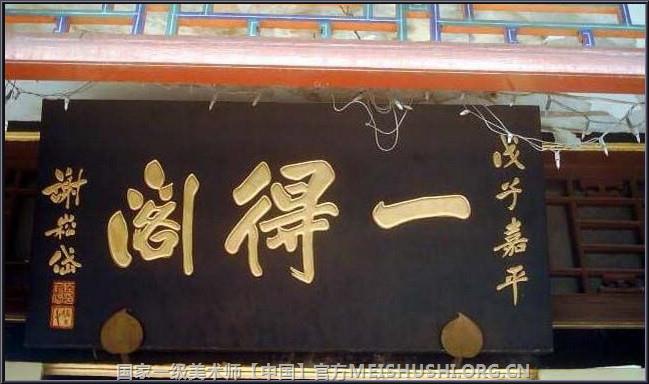 戊子嘉平
一得阁
謝崧岱
国家一级美术师【中国】官方MEISHUSHI.ORG.CN